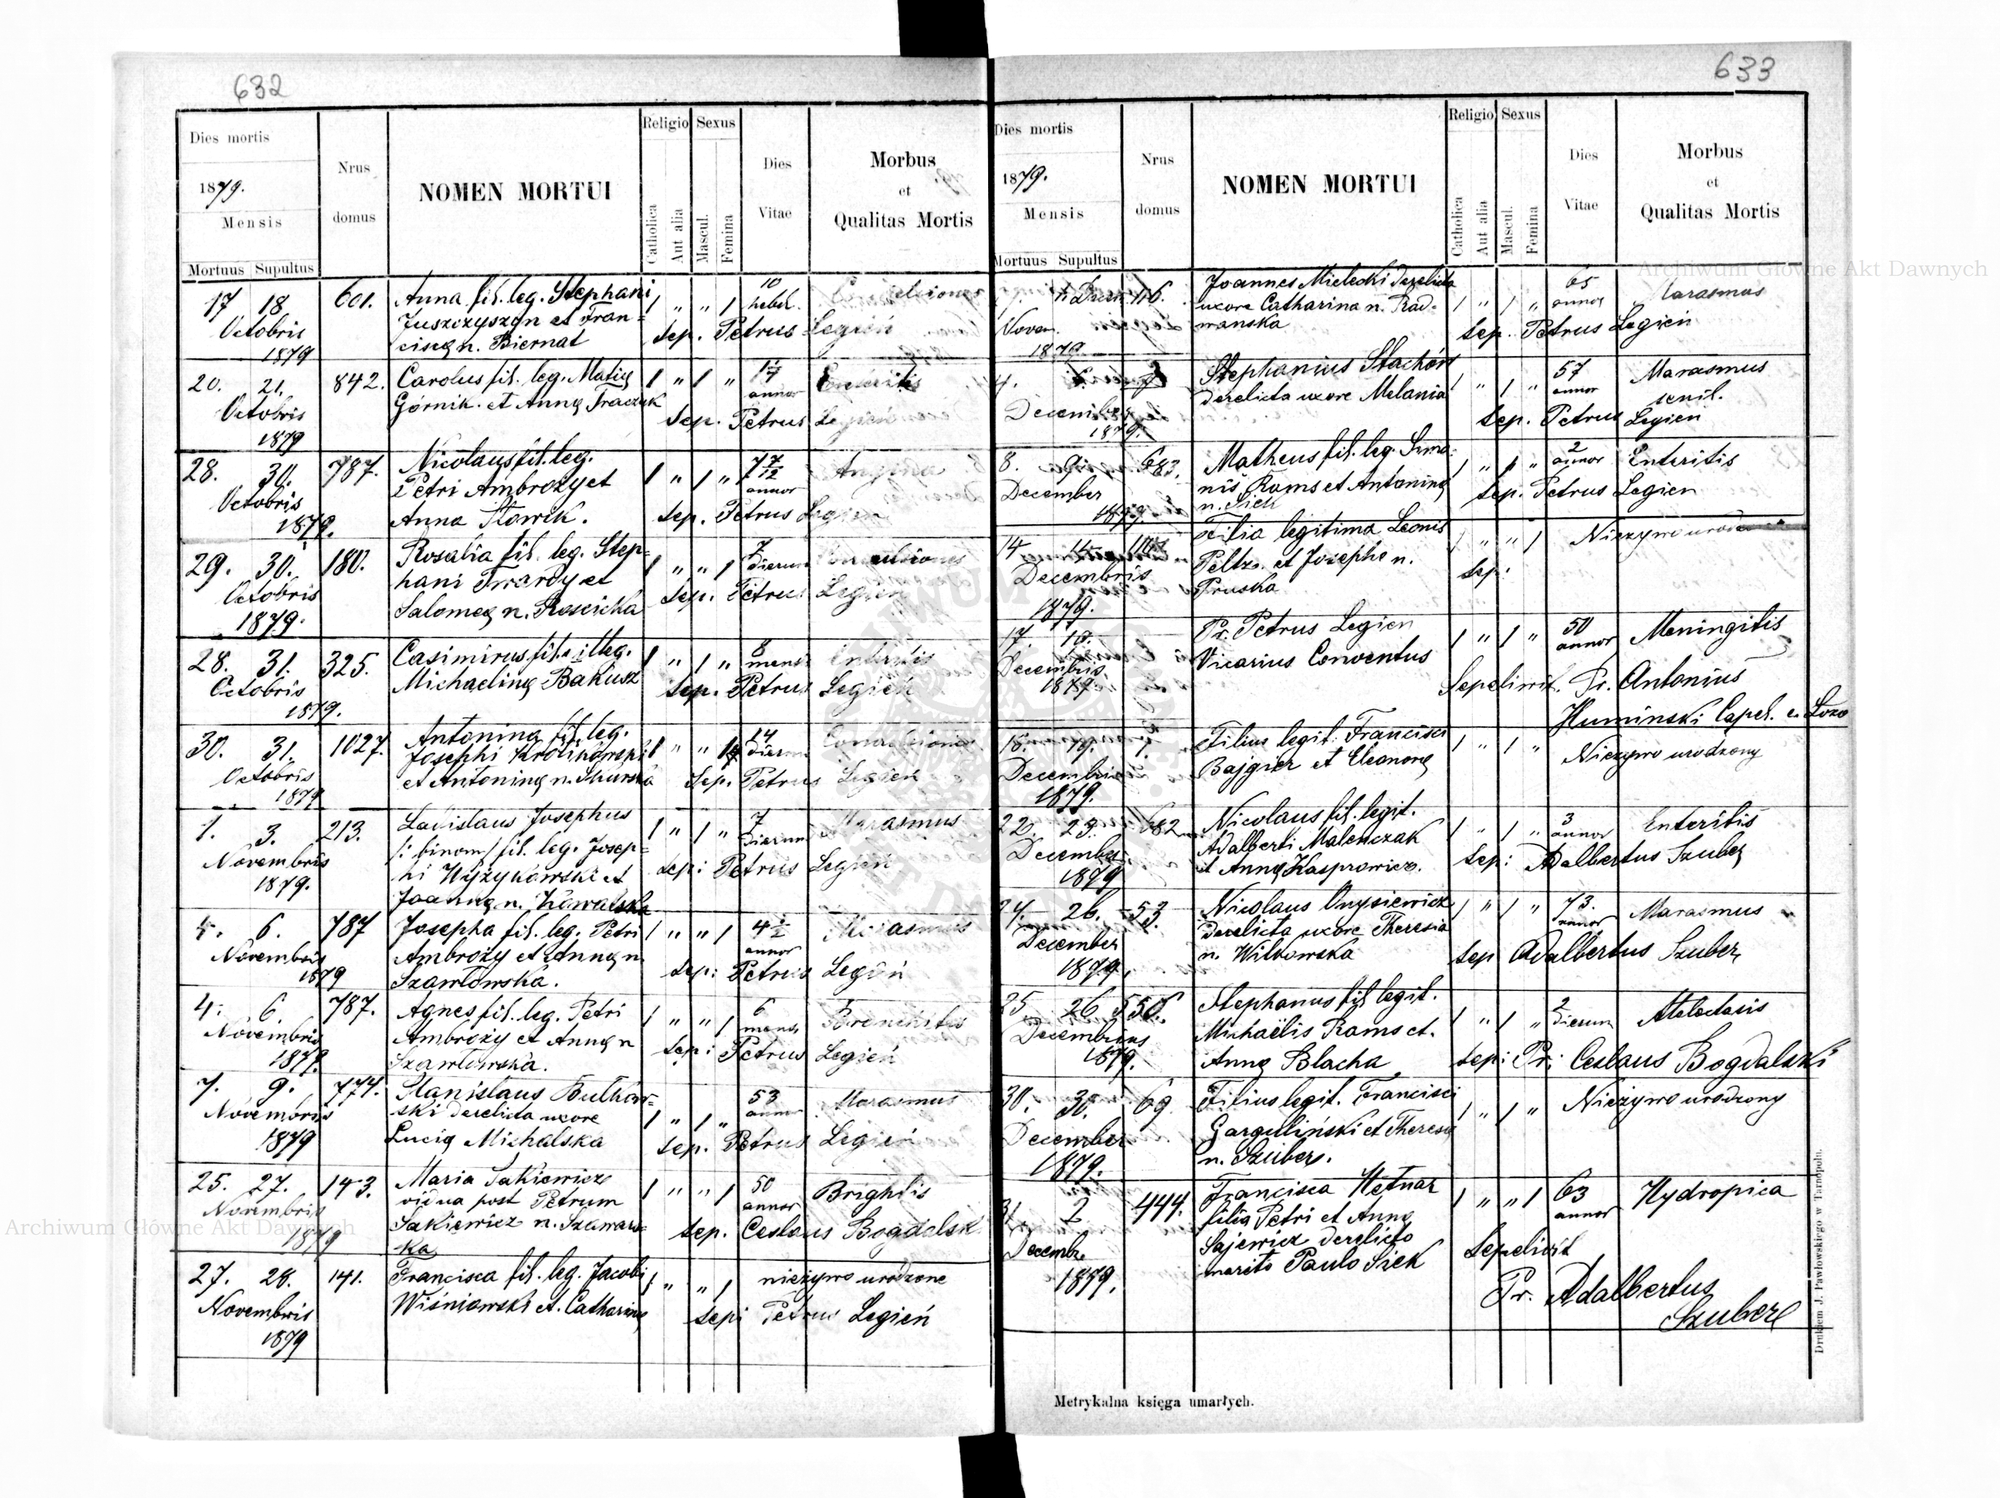 632
Dies mortis
1879.
Mensis
Mortuus Supultus
Nrus
domus
NOMEN MORTUI
Religio
Catholica
Aut alia
Sexus
Mascul.
Femina
Dies
Vitae
Morbus
et
Qualitas Mortis
17 18 601. Anna fil. leg. Stephani 1 " " 1 10
Octobris Juszczyszyn et Fran= hebd.
1879 ciscę n. Biernat Sep. Petrus Legień
20. 21. 842. Carolus fil. leg. Matię 1 " 1 " Enteritis
Octobris Górnik et Annę Traczyk annor
1879 Sep. Petrus Legień
28. 30. 787. Nicolaus fil. leg. 1 " 1 " 7 7/12 Angina
Octobris Petri Ambroży et annor
1879. Anna Słowik. Sep. Petrus Legień
29. 30. 180. Rosalia fil. leg. Step= 1 " " 1 7 Convulsiones
Octobris hani Twardy et dierum
1879. Salomeę n. Sep. Petrus Legień
28. 31. 325. Casimirus fil. illeg. 1 " 1 " 8 Enteritis
Octobris Michaelinę Bakusz mens.
1879. Sep. Petrus Legień
30. 31. 1027. Antonina fil. leg. 1 " " 1 14 Convulsiones
Octobris Josephi Królikowski dierum
1879 et Antoninę n. Sep. Petrus Legień
1. 3. 213. Ladislaus Josephus 1 " 1 " 7 Marasmus
Novembris /: binom / fil. leg. Josep= dierum
1879. hi Wyżykowski et Sep: Petrus Legień
Joannę n. Kowalska
4. 6. 787 Josepha fil. leg. Petri 1 " " 1 4 1/2 Marasmus
Novembris Ambroży et Annę n. annor
1879 Szawłowska. Sep: Petrus Legień
4. 6. 787. Agnes fil. leg. Petri 1 " " 1 6 Bronchitis
Novembris Ambroży et Annę n mens.
1879. Szawłowska. Sep: Petrus Legień
7. 9. 774. Stanislaus Butkow= 1 " 1 " 53 Marasmus
Novembris ski derelicta uxore annor
1879 Lucię Michalska Sep. Petrus Legień
25. 27. 143. Maria Sakiewicz 1 " " 1 50 Brightis
Novembris vidua post Petrum annor
1879 Sakiewicz n. Szamaw=
ka Sep. Ceslaus Bogdalsk
27. 28. 141. Francisca fil. leg. Jacobi 1 " " 1 nieżywo urodzone
Novembris Wiśniowski et Catharinę Sep: Petrus Legień
1879
633
Dies mortis
1879.
Mensis
Mortuus Supultus
Nrus
domus
NOMEN MORTUI
Religio
Catholica
Aut alia
Sexus
Mascul.
Femina
Dies
Vitae
Morbus
et
Qualitas Mortis
Joannes Mielecki derelicta 1 " 1 " 65 Marasmus
Novem. uxore Catharina n. Rad- annor
1879 wanska Sep. Petrus Legień
4. Stephanius Stachów 1 " 1 " 57 Marasmus
December derelicta uxore Melania annor senil.
1879. Sep. Petrus Legień
8. 9. 683. Matheus fil. leg. Simo 1 " 1 " 2 Enteritis
December nis Rams et Antoninę annor
1879. n. Sich Sep. Petrus Legien
14 Filia legitima Leonis 1 " " 1 Nieżywo urodzo
Decembris Peltz. et Josepha n.
1879. Pruska Sep.
17. 18. Pr. Petrus Legien 1 " 1 " 50 Meningitis
Decembris Vicarius Conventus annor
1879. Sepelivit. Pr. Antonius
Humiński Capel.
18. 19. Filius legit. Francisci 1 " 1 " Nieżywo urodzony
Decembris Bajgier et Eleonorę
1879.
22. 23. 682 Nicolaus fil. legit. 1 " 1 " 3 Enteritis
December Adalberti Malenczak annor
1879 et Annę Kasprowicz. Sep: Adalbertus Szuber
24. 26. 53. Nicolaus Onysiewicz 1 " 1 " 73. Marasmus
December derelicta uxore Theresia annor
1879. n. Witkowska Sep Adalbertus Szuber
25. 26 550. Stephanus fil legit. 1 " 1 " 2 Atelectasis
Decembris Michaëlis Rams et. dierum
1879. Annę Blacha Sep: Pr: Ceslaus Bogdalski
30. 30. 69 Filius legit. Francisci 1 " 1 " Nieżywo urodzony
December Gargulinski et Theresę
1879. n. Szuber.
31. 2 444. Francisca Hetnar 1 " " 1 63 Hydropica
Decembr. filia Petri et Annę annor
1879. Sajewicz derelicto Sepelivit
marito Paulo Sich
Pr. Adalbertus
Szuber
Metrykalna księga umarłych.
Drukiem J. Pawłowskiego w Tarnopolu.
Archiwum Główne Akt Dawnych
Archiwum Główne Akt Dawnych